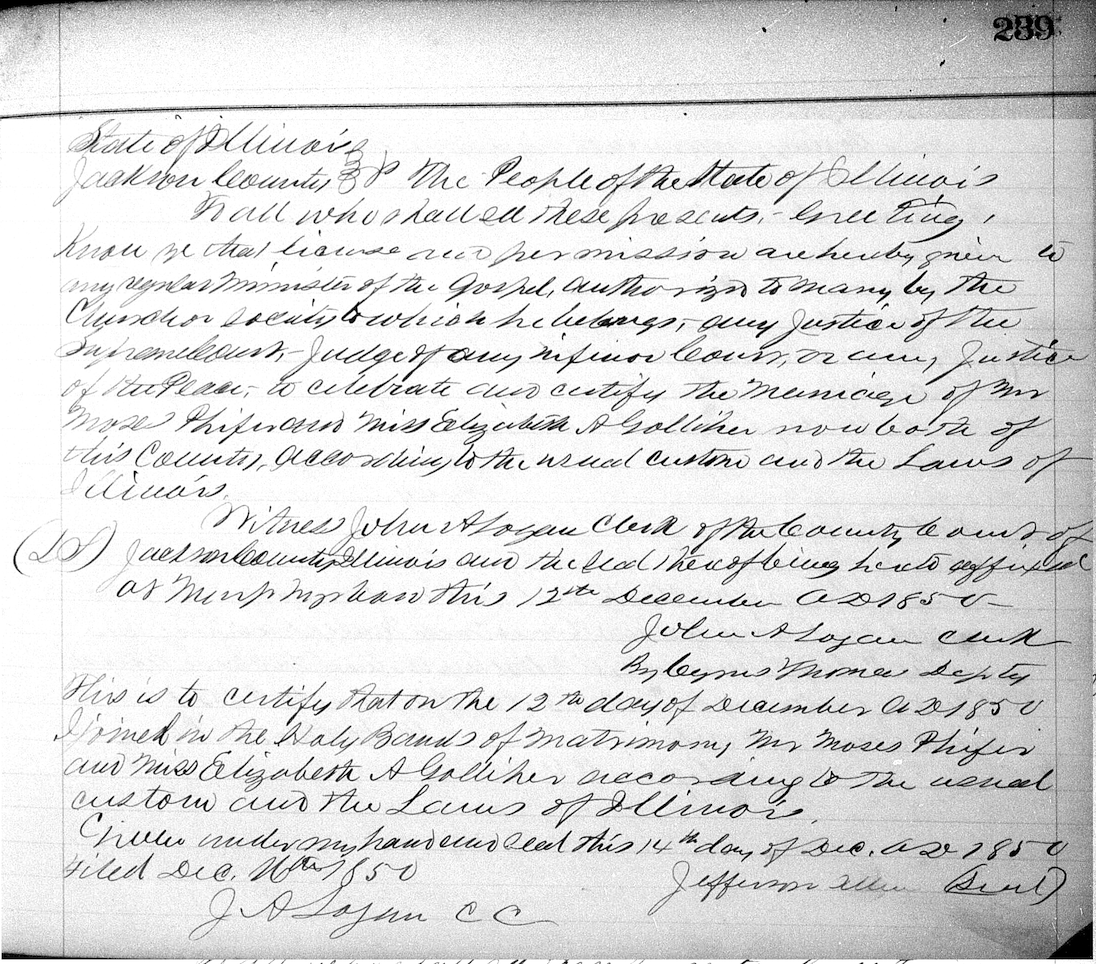 239
State of Illinois
Jackson County } The People of the State of Illinois
To all who shall see these presents,- Greeting,
Know ye that license and permission are hereby given to
any regular Minister of the Gospel, authorized to marry by the
Church or society to which he belongs,- any Justice of the
Supreme Court,- Judge of any inferior Court, or any Justice
of the Peace,- to celebrate and certify the Marriage of Mr
Moses Phifer and Miss Elizabeth A Golliher now both of
this County, according to the usual custom and the Laws of
Illinois.
Witness John A Logan Clerk of the County Court of
(LS) Jackson County Illinois and the seal thereof being hereto affixed
at Murphysboro this 12th December AD 1850
John A Logan Clerk
By Cyrus Thomas Depty
This is to certify that on the 12th day of December AD 1850
I joined in the Holy Bands of Matrimony Mr Moses Phifer
and Miss Elizabeth A Golliher according to the usual
custom and the Laws of Illinois.
Given under my hand and seal this 14th day of Dec. AD 1850
Filed Dec. 16th 1850 Jefferson Allen (Seal)
J A Logan C C